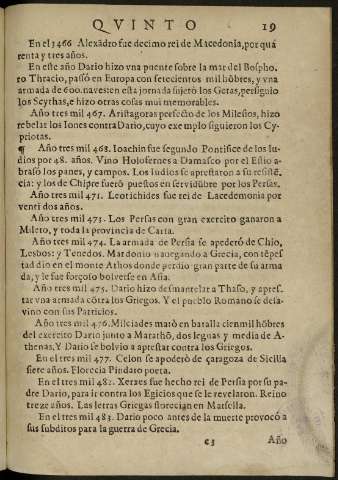 QVINTO 19
En el 3466 Alexãdro fue decimo rei de Macedonia, por quá
renta y tres años.
En este año Dario hizo vna puente sobre la mar del Bospho,
ro Thracio, passó en Europa con setecientos mil hõbres, y vna
armada de 600. naves: en esta jornada sujetò los Getas, persiguio
los Scythas, e hizo otras cosas mui memorables.
Año tres mil 467. Aristagoras perfecto de los Milesios, hizo
rebelar los Iones contra Dario, cuyo exemplo siguieron los Cy-
priotas.
¶ Año tres mil 468. Ioachin fue segundo Pontifice de los Iu-
dios por 48. años. Vino Holofernes a Damasco por el Estio a-
brasò los panes, y campos. Los Iudios se aprestaron a su resistẽ.
cia: y los de Chipre fuerõ puestos en servidũbre por los Persas.
Año tres mil 471. Leotichides fue rei de Lacedemonia por
venti dos años.
Año tres mil 473. Los Persas con gran exercito ganaron a
Mileto, y toda la provincia de Caria.
Año tres mil 474. La armada de Persia se apederó de Chio,
Lesbos: y Tenedos. Mardonio navegando a Grecia, con tẽpes
tad dio en el monte Athos donde perdio gran parte de su arma
da, y le fue forçoso bolverse en Asia.
Año tres mil 475. Dario hizo desmantelar a Thaso, y apres,
tar vna armada cõtra los Griegos. Y el pueblo Romano se desa-
vino con sus Patricios.
Año tres mil 476. Milciades matò en batalla cien mil hõbres
del exercito Dario junto a Marathõ, dos leguas y media de A-
thenas, Y Dario se bolvio a aprestar contra los Griegos.
En el tres mil 477. Celon se apoderò de çaragoza de Sicilia
siete años. Florecia Pindaro poeta.
En el tres mil 482. Xerxes fue hecho rei de Persia por su pa-
dre Dario, para ir contra los Egicios que se le revelaron. Reino
treze años. Las letras Griegas florecian en Marsella.
En el tres mil 483. Dario poco antes de la muerte provocó a
sus subditos para la guerra de Grecia.
c3 Año